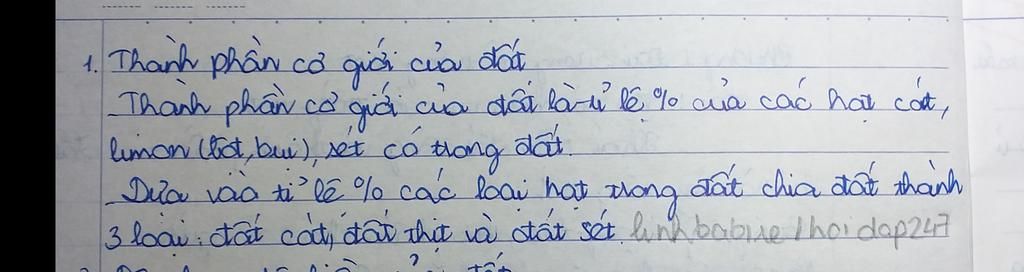 1. Thành phần cơ giới của đất
Thành phần cơ giới của đất là tỉ lệ % của các hạt cát,
limon (bột, bụi), sét có trong đất.
Dựa vào tỉ lệ % các loại hạt trong đất chia đất thành
3 loại: đất cát, đất thịt và đất sét. linhbabiie/hoidap247